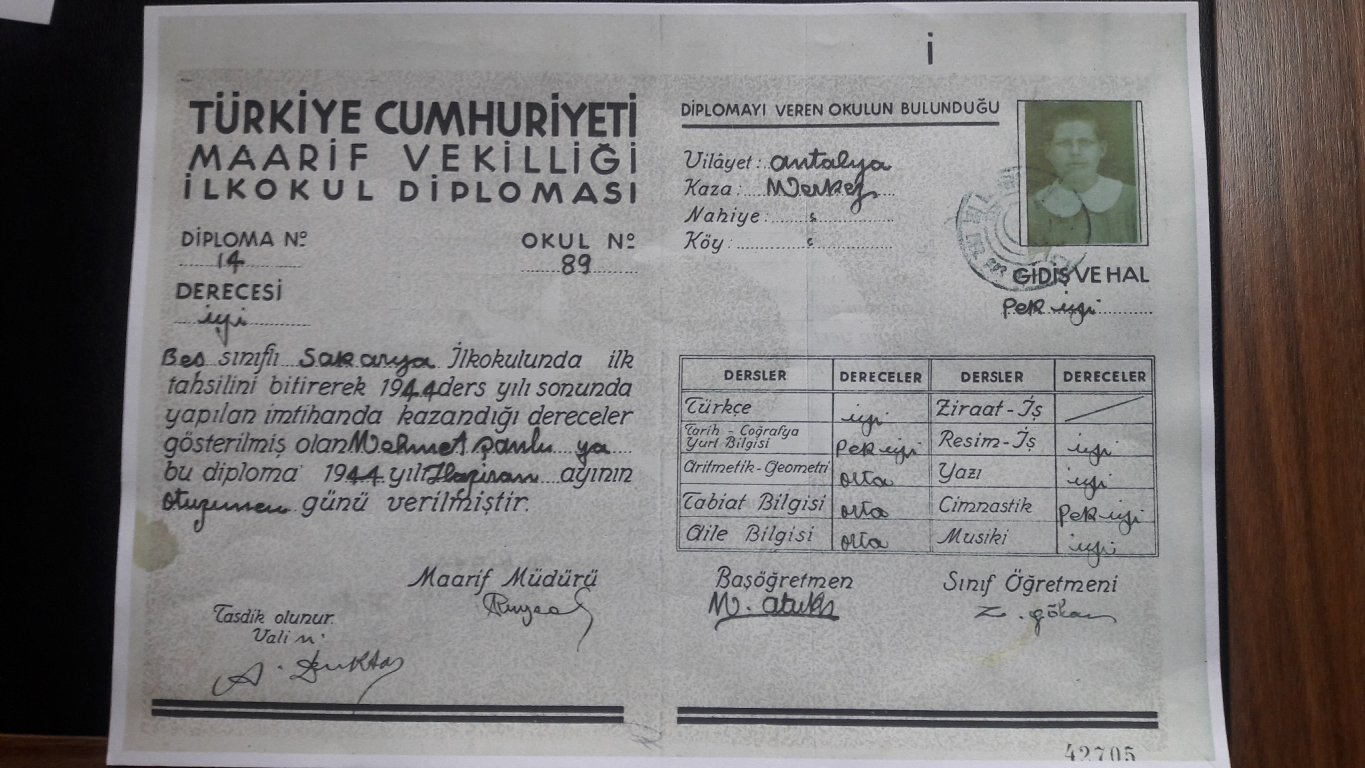 İ
TÜRKİYE CUMHURİYETİ
MAARİF VEKİLLİĞİ
İLKOKUL DİPLOMASI
DİPLOMA Nº
14
OKUL Nº
89
DERECESİ
iyi
Beş sınıflı Sakarya İlkokulunda ilk
tahsilini bitirerek 1944 ders yılı sonunda
yapılan imtihanda kazandığı dereceler
gösterilmiş olan Mehmet Şanlı ya
bu diploma 1944 yılı Haziran ayının
otuzuncu günü verilmiştir.
Maarif Müdürü
Tasdik olunur.
Vali n.
DİPLOMAYI VEREN OKULUN BULUNDUĞU
Vilâyet: antalya
Kaza: Merkez
Nahiye:
Köy:
GİDİŞ VE HAL
Pek iyi
DERSLER DERECELER DERSLER DERECELER
Türkçe iyi Ziraat-İş
Tarih - Coğrafya
Yurt Bilgisi Pek iyi Resim-İş iyi
Aritmetik-Geometri orta Yazı iyi
Tabiat Bilgisi orta Cimnastik Pek iyi
Aile Bilgisi orta Musiki iyi
Başöğretmen
Sınıf Öğretmeni
Z. gökan
42705